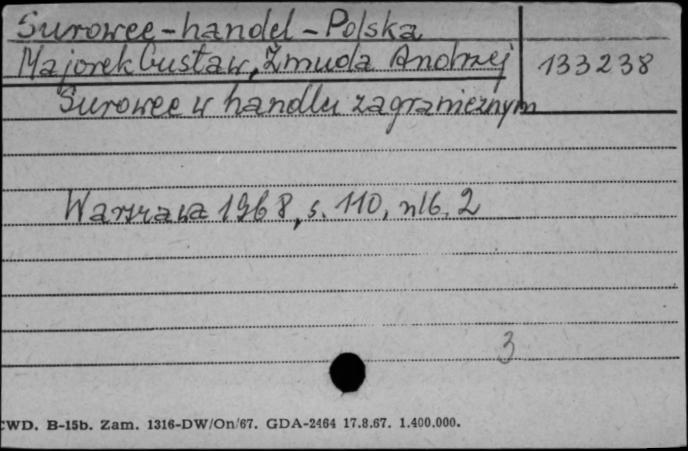 Surowce - handel - Polska
Majorek Gustaw, Żmuda Andrzej
133238
Surowce w handlu zagranicznym
Warszawa 1968, s. 110, nlb. 2
3
CWD. B-15b. Zam. 1316-DW/On/67. GDA-2464 17.8.67. 1.400.000.